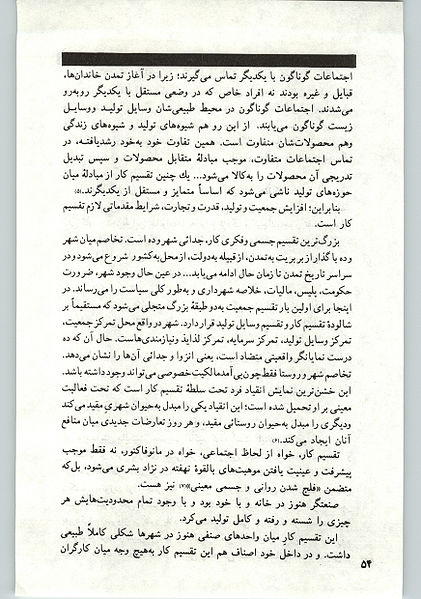 اجتماعات گوناگون با یکدیگر تماس می‌گیرند؛ زیرا در آغاز تمدن خاندان‌ها،
قبایل و غیره بودند نه افراد خاص که در وضعی مستقل با یکدیگر روبه‌رو
می‌شدند. اجتماعات گوناگون در محیط طبیعی‌شان وسایل تولید و وسایل
زیست گوناگون می‌یابند. از این رو هم شیوه‌های تولید و شیوه‌های زندگی
وهم محصولات‌شان متفاوت است. همین تفاوت خود به‌خود رشدیافته، در
تماس اجتماعات متفاوت، موجب مبادلهٔ متقابل محصولات و سپس تبدیل
تدریجی آن محصولات را به‌کالا می‌شود... یك چنین تقسیم کار از مبادلهٔ میان
حوزه‌های تولید ناشی می‌شود که اساساً متمایز و مستقل از یکدیگرند.(۵)
بنابراین؛ افزایش جمعیت و تولید، قدرت و تجارت، شرایط مقدماتی لازم تقسیم
کار است.
بزرگ‌ترین تقسیم جسمی و فکری کار، جدائی شهر وده است. تخاصم میان شهر
وده با گذار از بربریت به‌تمدن، از قبیله به‌دولت، از محل به‌کشور شروع می‌شود و در
سراسر تاریخ تمدن تا زمان حال ادامه می‌یابد... در عین حال وجود شهر، ضرورت
حکومت، پلیس، مالیات، خلاصه شهرداری و به‌طور کلی سیاست را می‌رساند. در
اینجا برای اولین بار تقسیم جمعیت به‌دو طبقهٔ بزرگ متجلی می‌شود که مستقیماً بر
شالودهٔ تقسیم کار و تقسیم وسایل تولید قرار دارد. شهر در واقع محل تمرکز جمعیت،
تمرکز وسایل تولید، تمرکز سرمایه، تمرکز لذاید و نیازمندی‌هاست. حال آن که ده
درست نمایانگر واقعیتی متضاد است، یعنی انزوا و جدائی آن‌ها را نشان می‌دهد.
تخاصم شهر و روستا فقط چون پی‌آمد مالکیت خصوصی می‌تواند وجود داشته باشد.
این خشن‌ترین نمایش انقیاد فرد تحت سلطهٔ تقسیم کار است که تحت فعالیت
معینی بر او تحمیل شده است؛ این انقیاد یکی را مبدل به‌حیوان شهریِ مقید می‌کند
ودیگری را مبدل به‌حیوان روستائی مقید، و هر روز تعارضات جدیدی میان منافع
آنان ایجاد می‌کند.(۶)
تقسیم کار، خواه از لحاظ اجتماعی، خواه در مانوفاکتور، نه فقط موجب
پیشرفت و عینیت یافتن موهبت‌های بالقوهٔ نهفته در نژاد بشری می‌شود، بل‌که
متضمن «فلج شدن روانی و جسمی معینی»(۷) نیز هست.
صنعتگر هنوز در خانه و با خود بود و با وجود تمام محدودیت‌هایش هر
چیزی را شسته و رفته و کامل تولید می‌کرد.
این تقسیم کارِ میان واحدهای صنفی هنوز در شهرها شکلی کاملاً طبیعی
داشت. و در داخل خود اصناف هم این تقسیم کار به‌هیچ وجه میان کارگران
۵۴